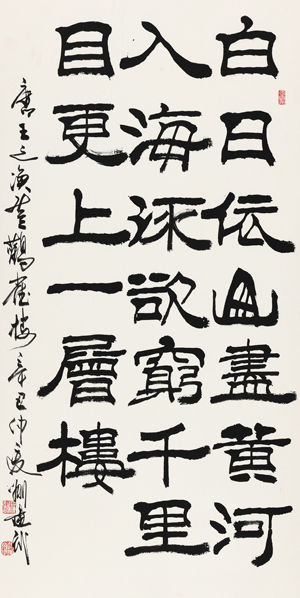 白日依山盡黄河
入海流欲窮千里
目更上一層樓
唐王之涣登鸛雀樓辛巳仲夏